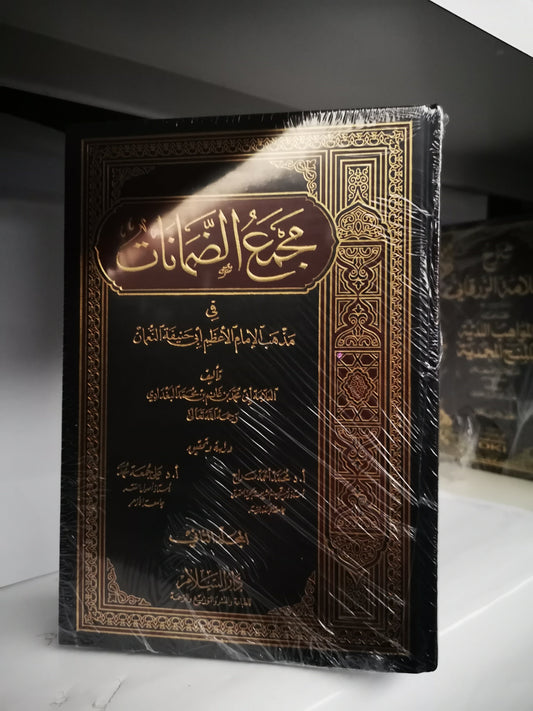 مجمع الضمانات
في
مذهب الإمام الأعظم أبي حنيفة النعمان
تأليف
العلامة أبي محمد بن غانم بن محمد البغدادي
رحمه الله تعالى
دراسة وتحقيق
أ.د محمد أحمد سراج
أ.د علي جمعة محمد
المجلد الثاني
دار السلام
للطباعة والنشر والتوزيع والترجمة
شرح
العلامة الزرقاني
المواهب اللدنية
بالمنح المحمدية